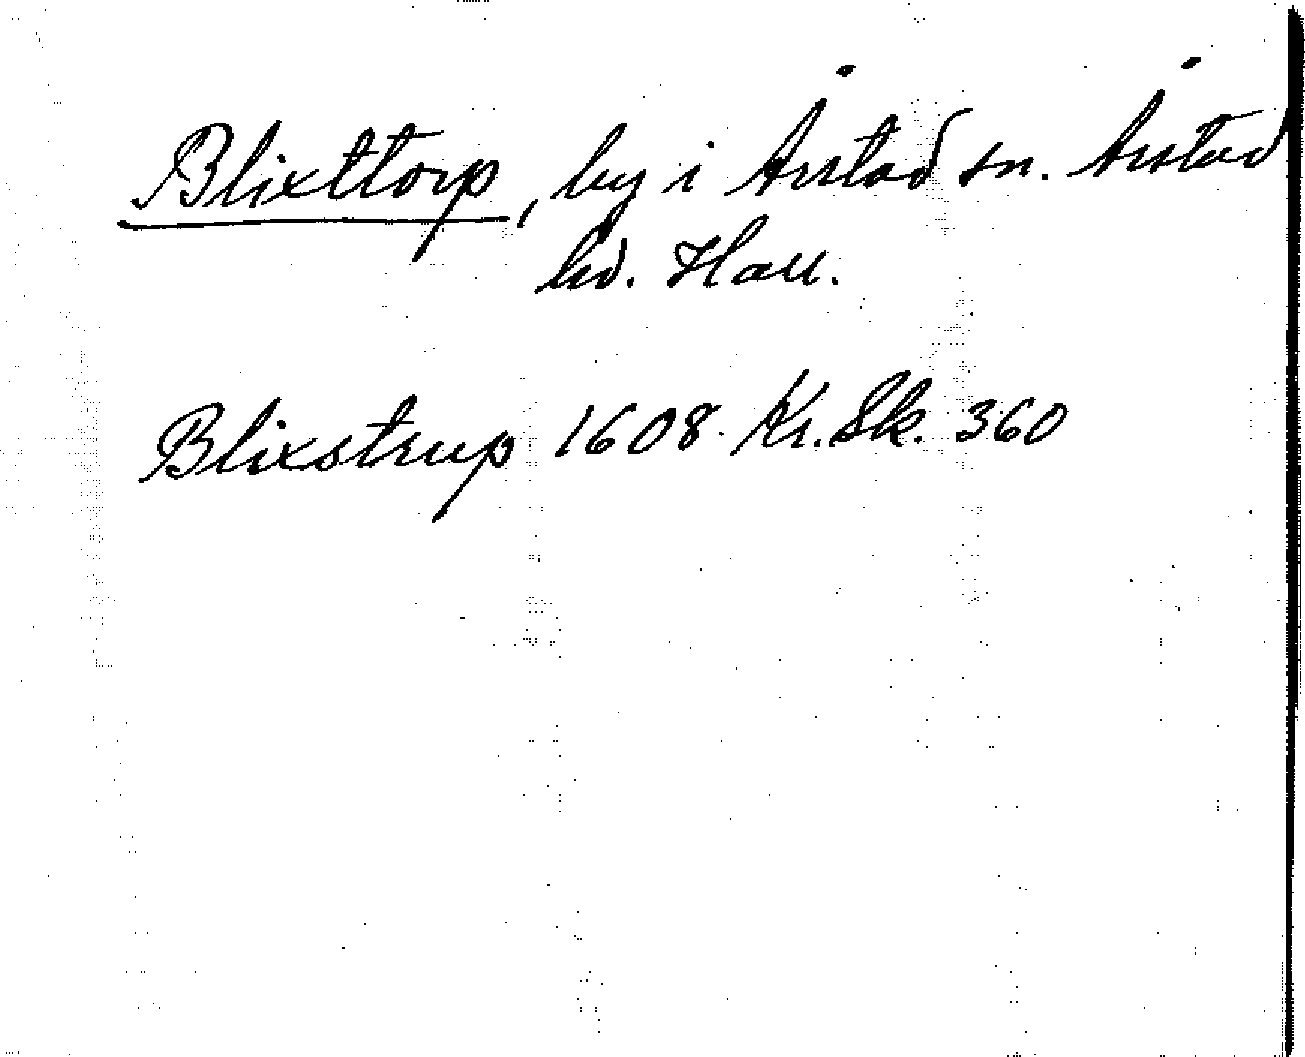 Blixttorp, by i Årstad sn. Årstad
hd. Hall.
Blixstrup 1608. Kr. Sk. 360